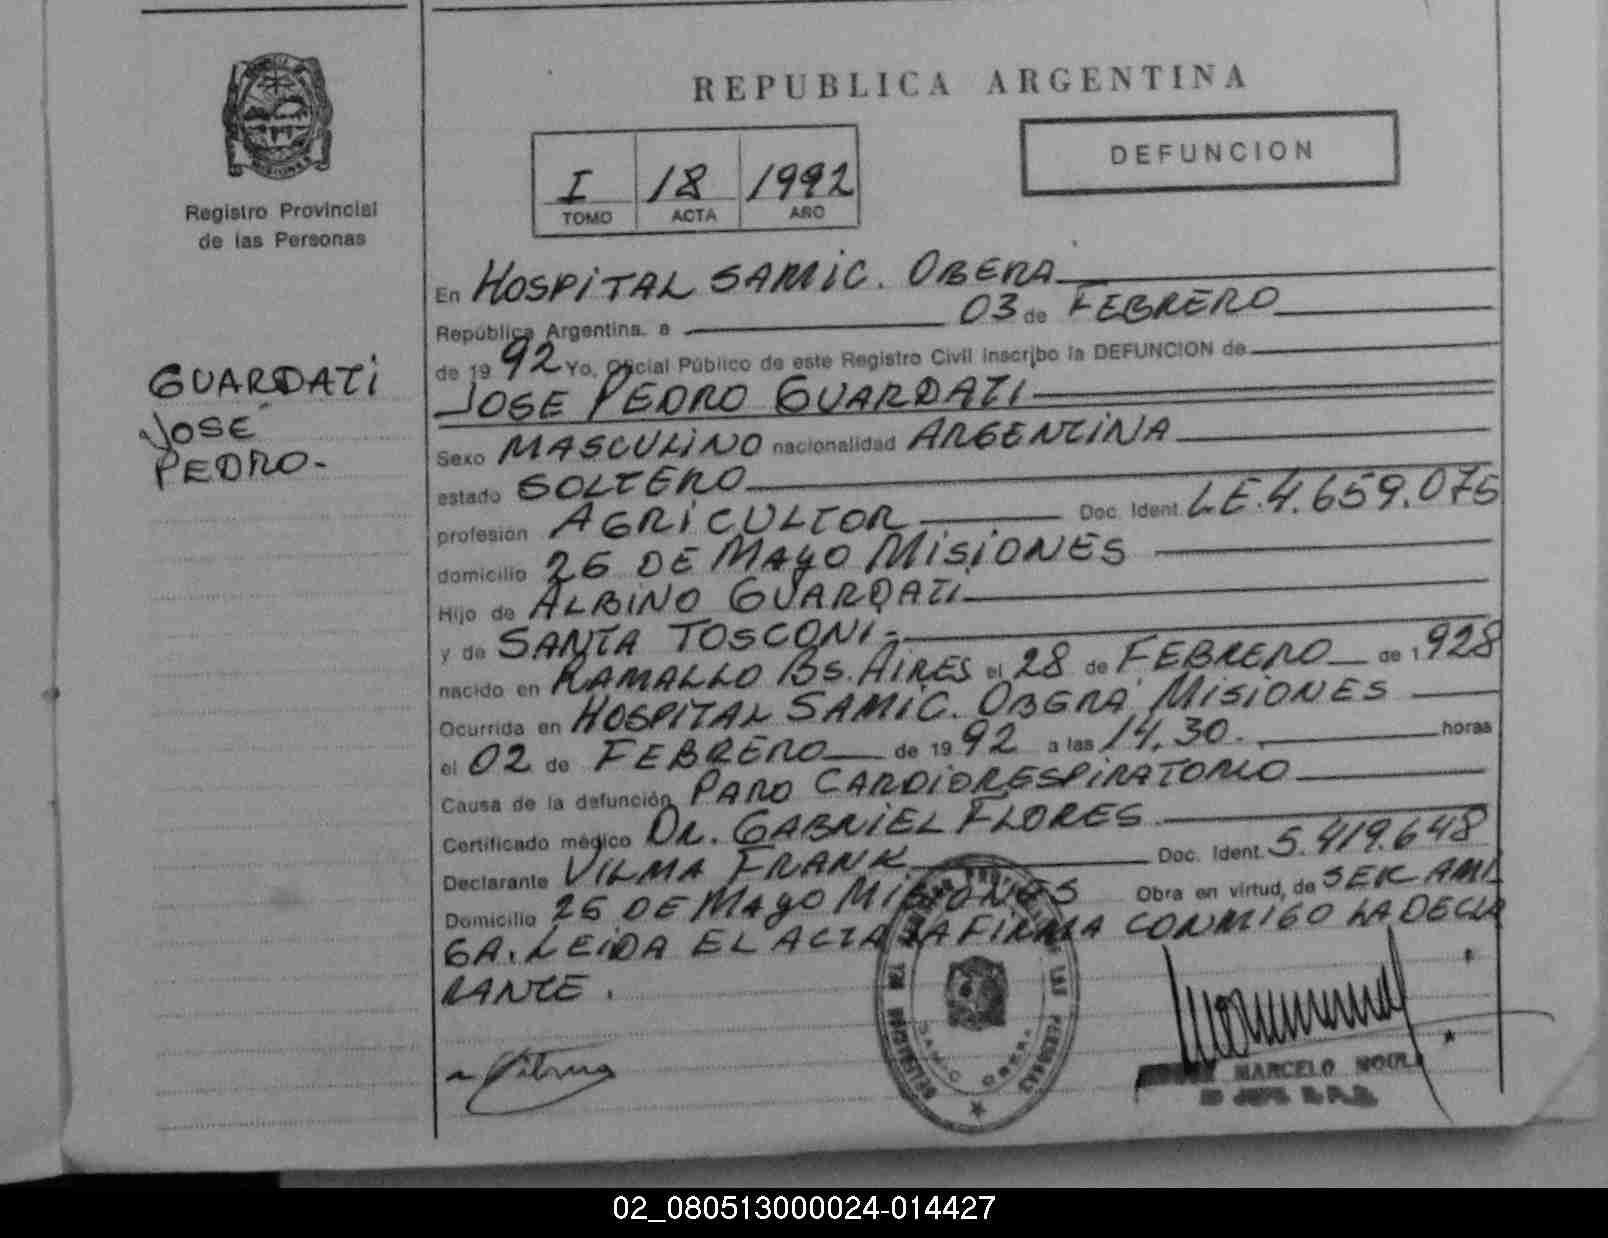 REPUBLICA ARGENTINA
DEFUNCION
I 18 1992
TOMO ACTA AÑO
MISIONES
Registro Provincial
de las Personas
GUARDATI
JOSÉ
PEDRO.-
En HOSPITAL SAMIC. OBERA
República Argentina, a 03 de FEBRERO
de 1992 Yo, Oficial Público de este Registro Civil inscribo la DEFUNCION de
JOSE PEDRO GUARDATI
Sexo MASCULINO nacionalidad ARGENTINA
estado SOLTERO
profesión AGRICULTOR Doc. Ident. L.E. 4.659.075
domicilio 26 DE MAYO MISIONES
Hijo de ALBINO GUARDATI
y de SANTA TOSCONI.-
nacido en RAMALLO BS. AIRES el 28 de FEBRERO de 1928
Ocurrida en HOSPITAL SAMIC. OBERA MISIONES
el 02 de FEBRERO de 1992 a las 14,30. horas
Causa de la defunción PARO CARDIORESPIRATORIO
Certificado médico DR. GABRIEL FLORES
Declarante VILMA FRANK Doc. Ident. 5.419.648
Domicilio 25 DE MAYO MISIONES Obra en virtud, de SER AMI
GA. LEIDA EL ACTA LA FIRMA CONMIGO LA DECLA
RANTE.
Vilma
SAMIC OBERA
MARCELO
02_080513000024-014427